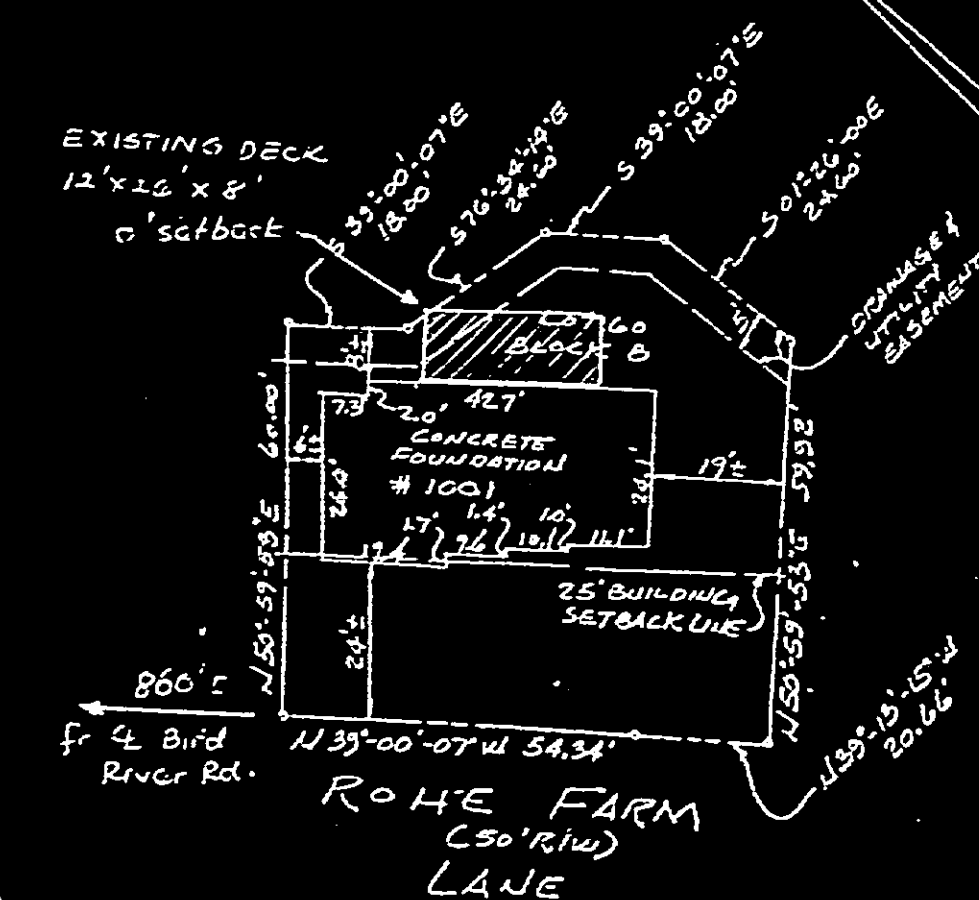 EXISTING DECK
12'x16'x8'
0'setback
S 39°-00'-07"E
18.00'
S 76°-34'-14"E
24.60'
S 39°-00'-07"E
18.00'
S 01°-26'-00E
24.60'
DRAINAGE &
UTILITY
EASEMENT
LOT 60
BLOCK B
8'±
5'
7.3
2.0'
42.7'
CONCRETE
FOUNDATION
# 1001
6'±
24.0'
24.1'
19'±
60.00'
N 50°-59'-53"E
59.92'
N 50°-59'-53"E
1.7'
1.4'
1.0'
19.4
9.6
10.1
11.1'
25' BUILDING
SETBACK LINE
24'±
860'±
fr ℄ Bird
River Rd.
N 39°-00'-07"W 54.34'
N 39°-13'-15"W
20.66'
ROHE FARM
(50'R/W)
LANE